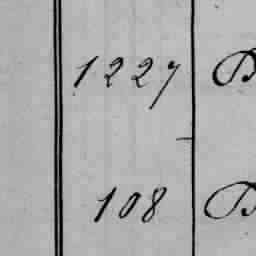 1227 B
108 B